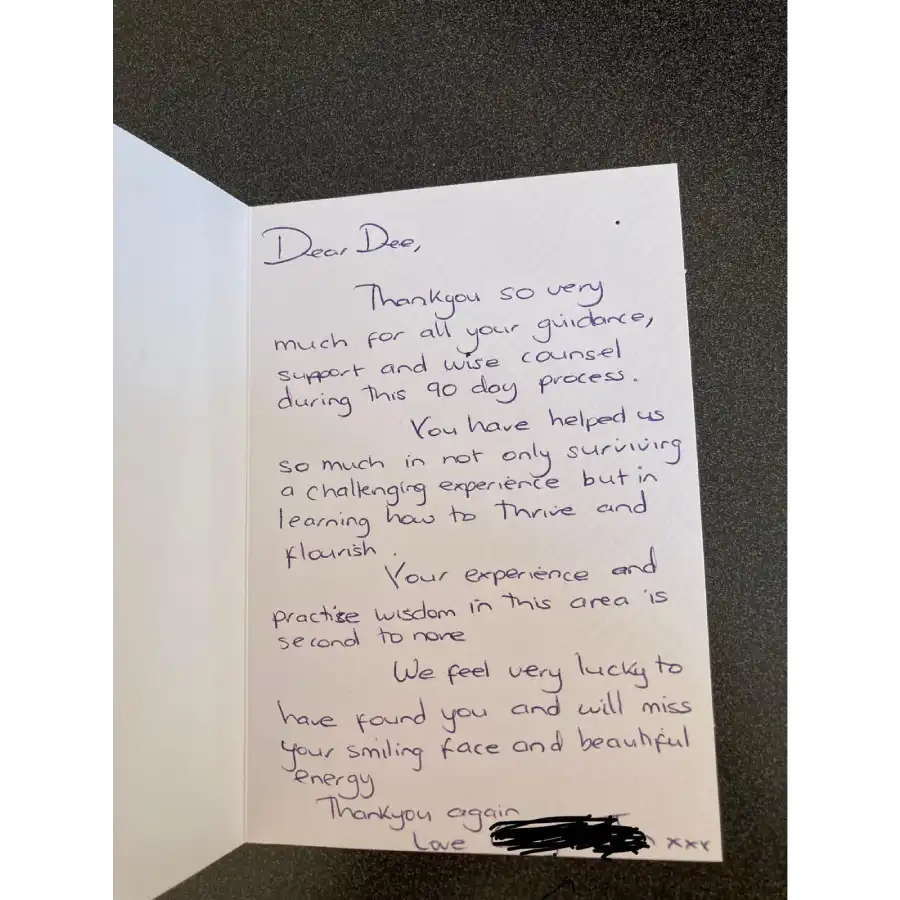 Dear Dee,
Thankyou so very
much for all your guidance,
support and wise counsel
during this 90 day process.
You have helped us
so much in not only surviving
a challenging experience but in
learning how to thrive and
flourish.
Your experience and
practise wisdom in this area is
second to none
We feel very lucky to
have found you and will miss
your smiling face and beautiful
energy
Thankyou again
Love xxx